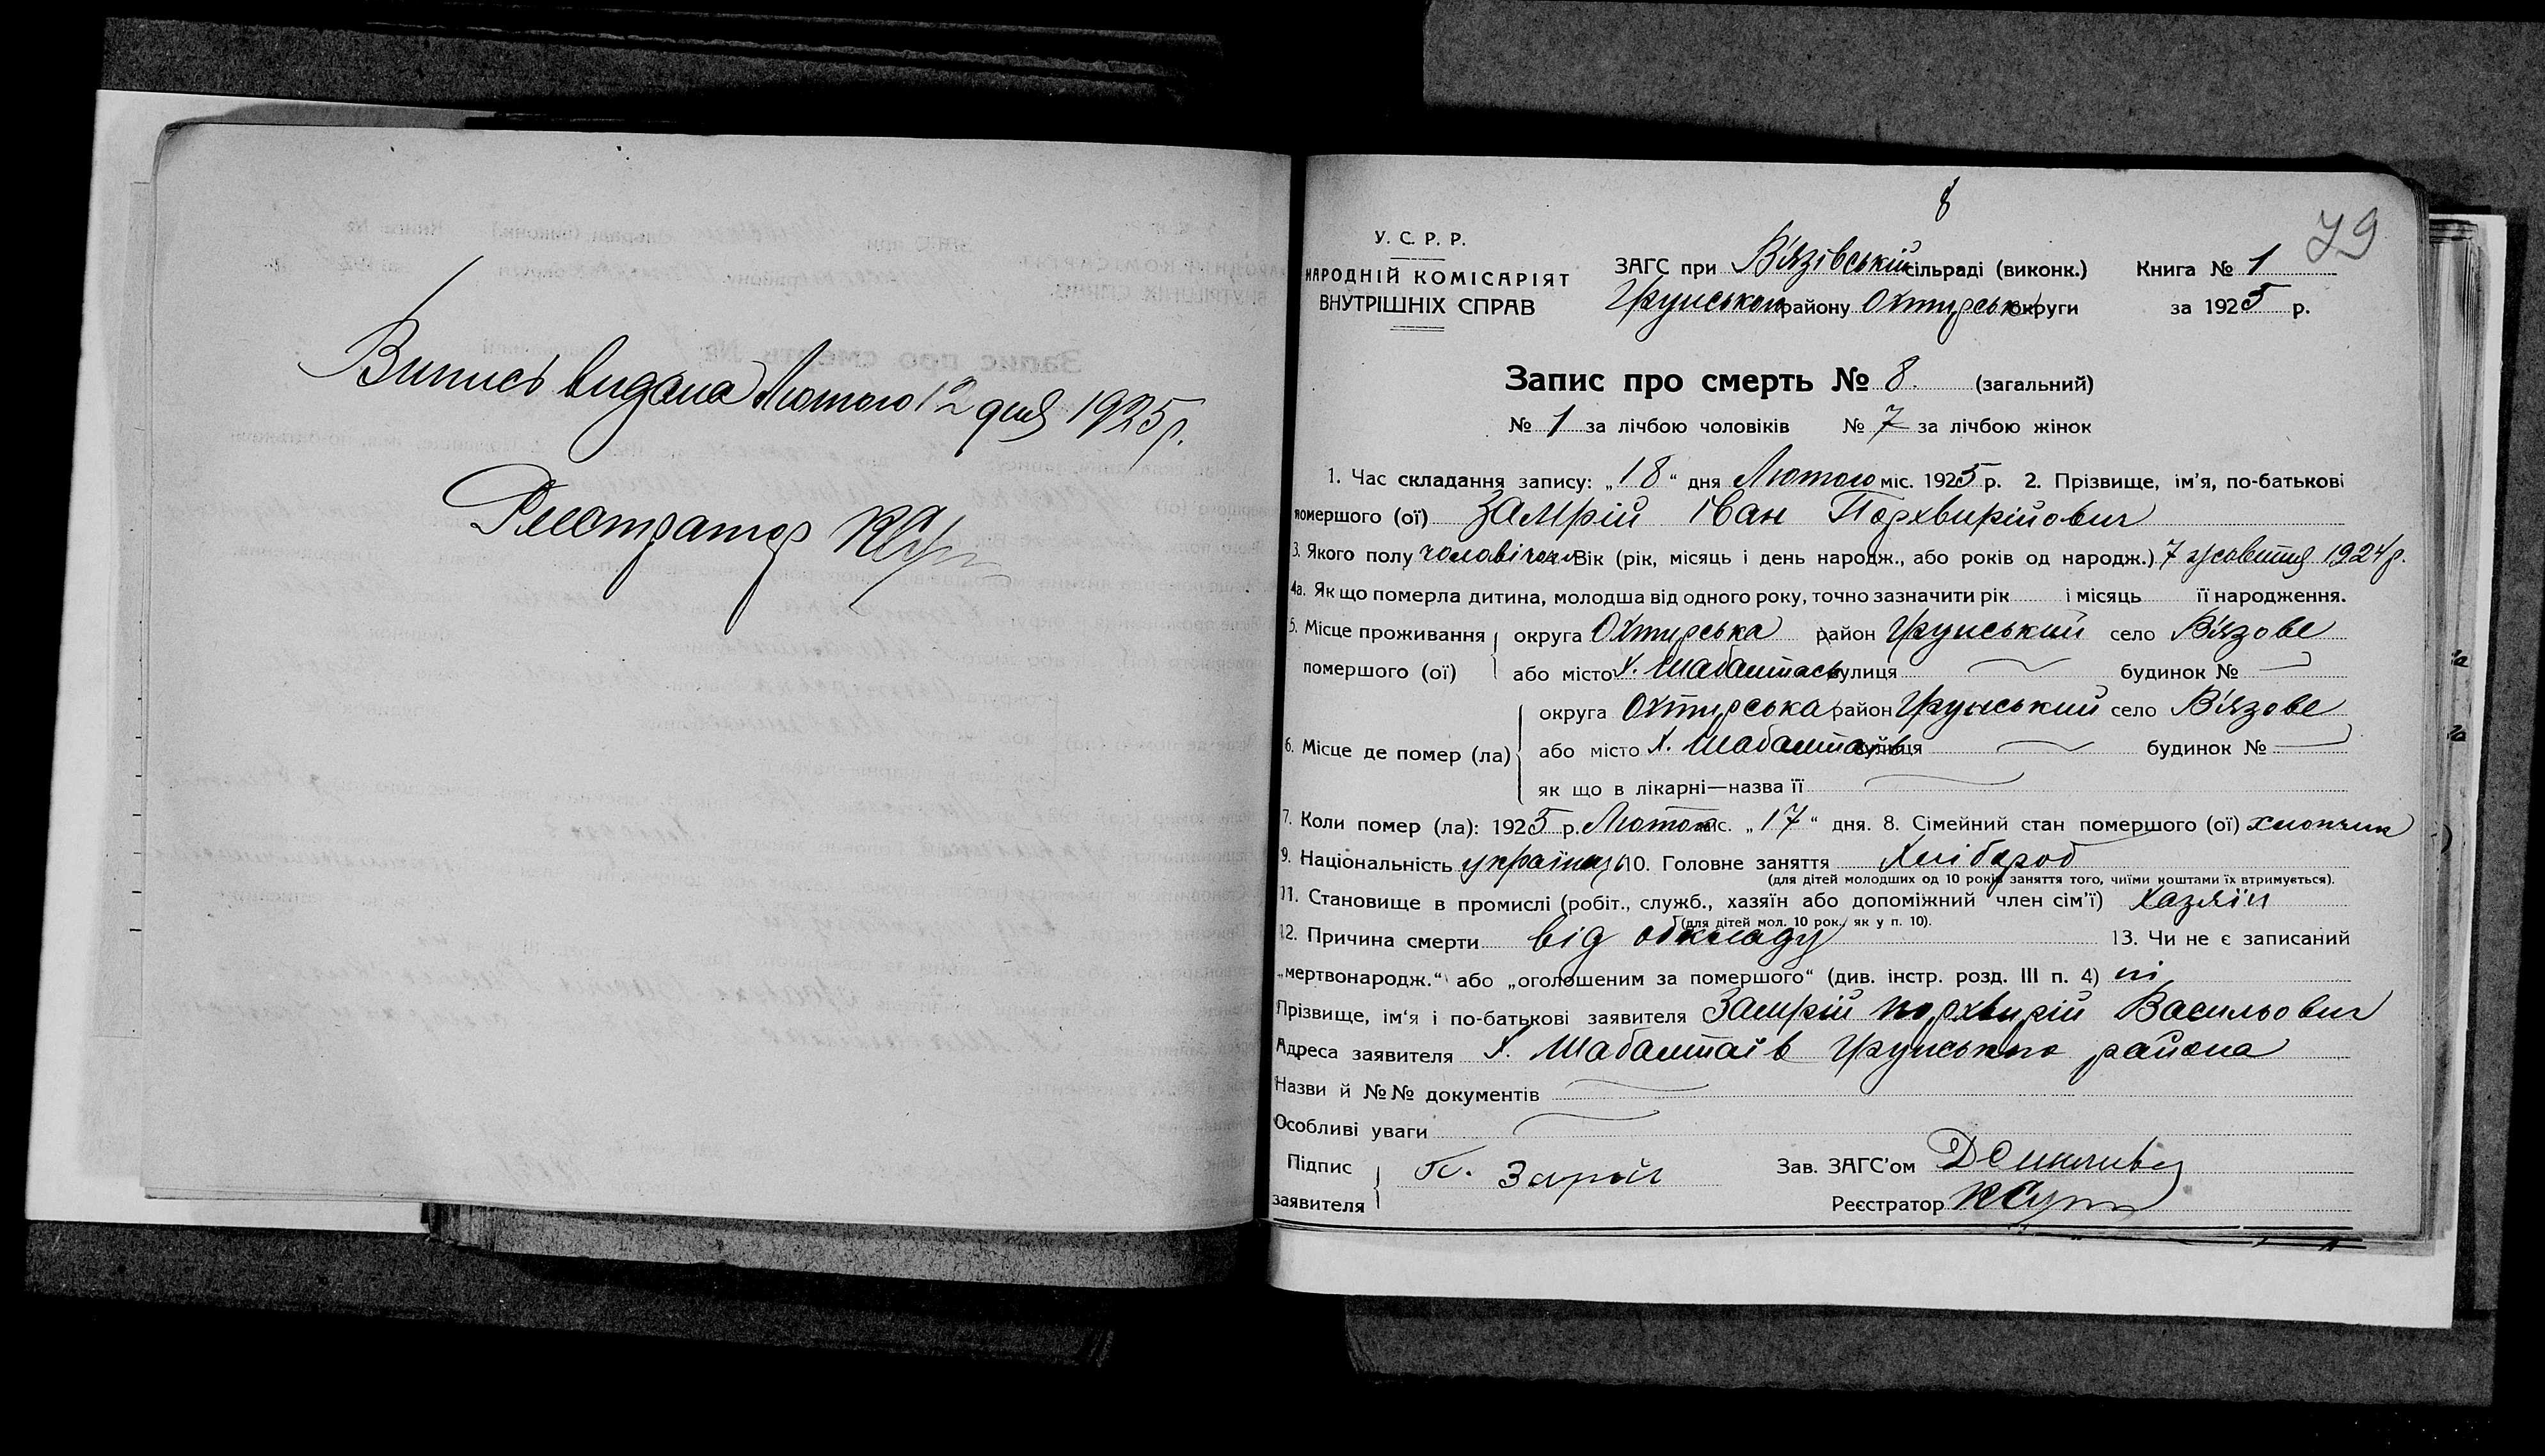 Випись видана Лютого 12 дня 1925 р.
Реєстратор
8
79
У. С. Р. Р.
НАРОДНІЙ КОМІСАРІЯТ
ВНУТРІШНІХ СПРАВ
ЗАГС при Вʼязівській сільраді (виконк.) Книга № 1
Грунського району Охтирської округи за 1925 р.
Запис про смерть № 8. (загальний)
№ 1 за лічбою чоловіків № 7 за лічбою жінок
1. Час складання запису: „18“ дня Лютого міс. 1925 р. 2. Прізвище, ім'я, по-батькові
помершого (ої) Замрій Іван Порхвирійович
3. Якого полу чоловічого Вік (рік, місяць і день народж., або років од народж.) 7 жовтня 1924 р.
4а. Як що померла дитина, молодша від одного року, точно зазначити рік і місяць її народження.
5. Місце проживання округа Охтирська район Грунський село Вʼязове
помершого (ої) або місто х. Шабалтаєв вулиця будинок №
округа Охтирська район Грунський село Вʼязове
6. Місце де помер (ла) або місто х. Шабалтаїв вулиця будинок №
як що в лікарні—назва її
7. Коли помер (ла): 1925 р. Лютого міс. „17“ дня. 8. Сімейний стан помершого (ої) хлопчик
9. Національність українець 10. Головне заняття Хлібороб
(для дітей молодших од 10 років заняття того, чиїми коштами їх втримується).
11. Становище в промислі (робіт., служб., хазяїн або допоміжний член сім'ї) Хазяїн
(для дітей мол. 10 рок. як у п. 10).
12. Причина смерти від обкладу 13. Чи не є записаний
„мертвонародж.“ або „оголошеним за помершого“ (див. інстр. розд. III п. 4) ні
Прізвище, ім'я і по-батькові заявителя Замрій Порхвирій Васильович
Адреса заявителя х. Шабалтаїв Грунського района
Назви й №№ документів
Особливі уваги
Підпис
заявителя
П. Замрій
Зав. ЗАГС'ом
Реєстратор